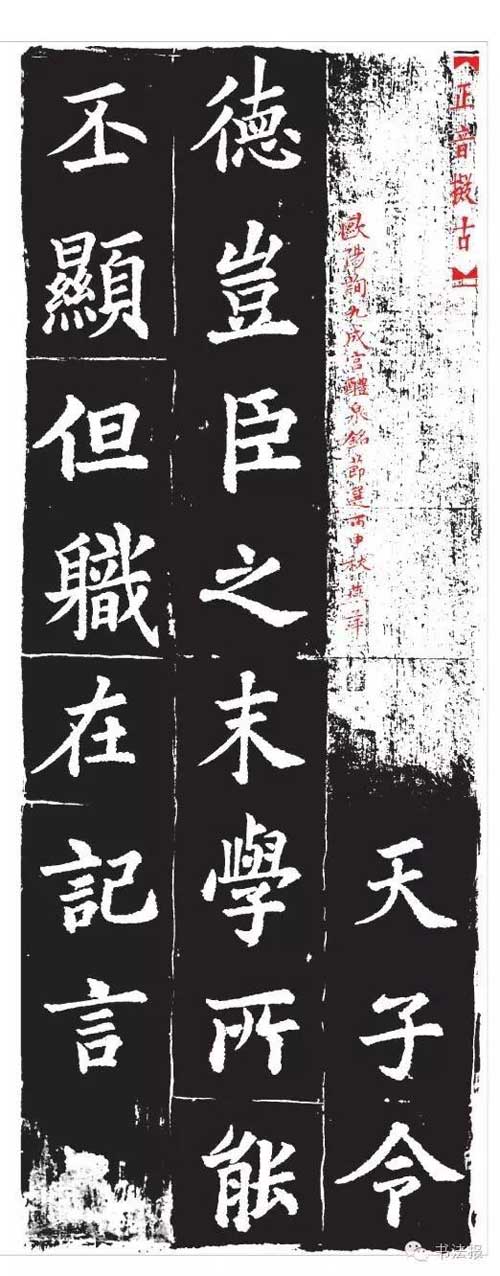 【正音擬古】
歐陽詢九成宮醴泉銘節選丙申秋燕萍
天子令
德豈臣之末學所能
丕顯但軄在記言
书法报